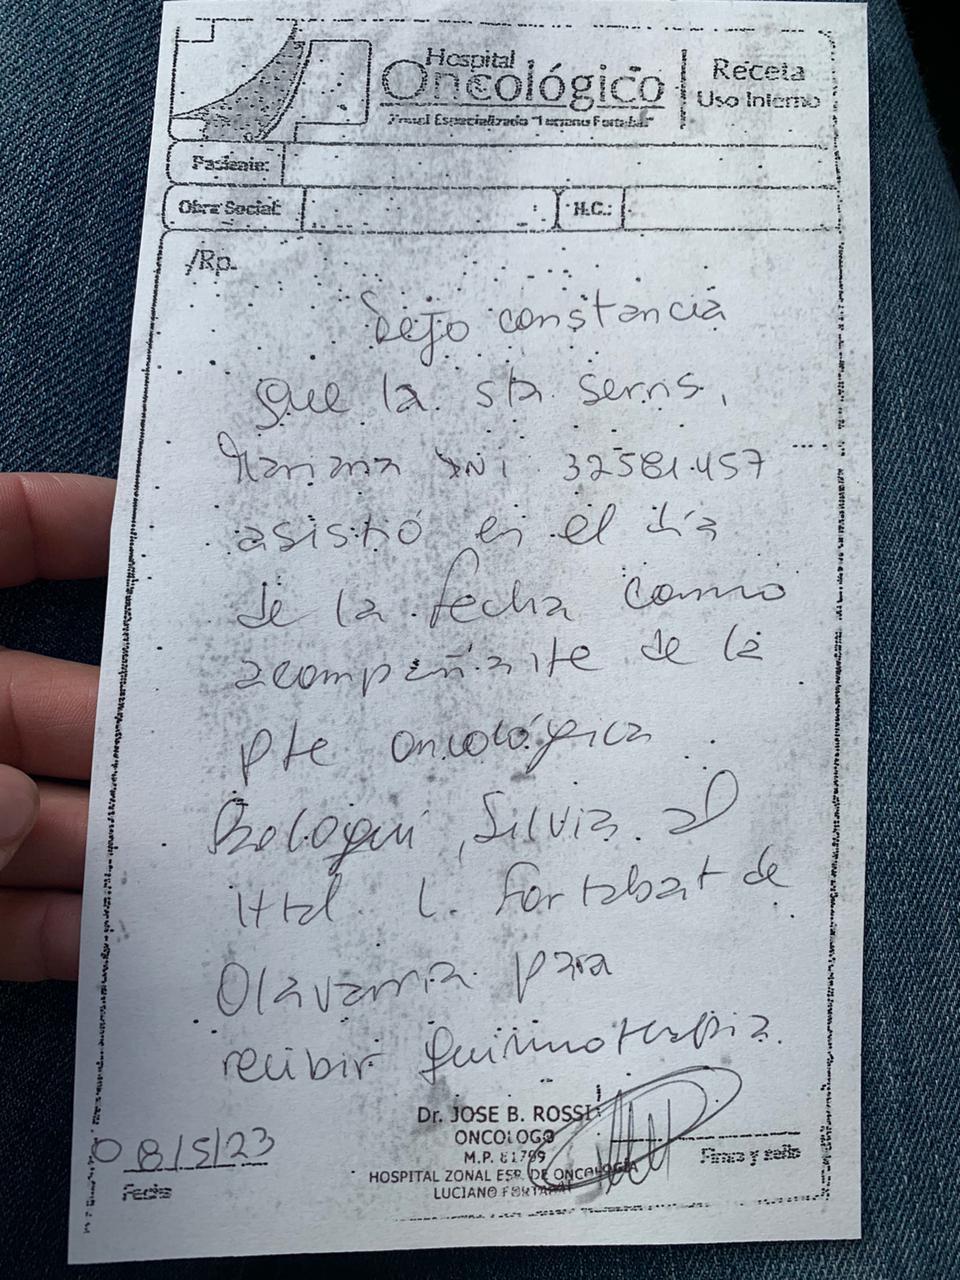 Hospital
Oncológico
Zonal Especializado "Luciano Fortabat"
Receta
Uso Interno
Paciente:
Obra Social:
H.C.:
/Rp.
Dejo constancia
que la sta Serns,
Mariana DNI 32581.457
asistió en el día
de la fecha como
acompañante de la
pte oncológica
Bologui, Silvia al
Htal L. Fortabat de
Olavarria para
recibir quimioterapia.
08/5/23
Fecha
Dr. JOSE B. ROSSI
ONCOLOGO
M.P. 61799
HOSPITAL ZONAL ESP. DE ONCOLOGÍA
LUCIANO FORTABAT
Firma y sello